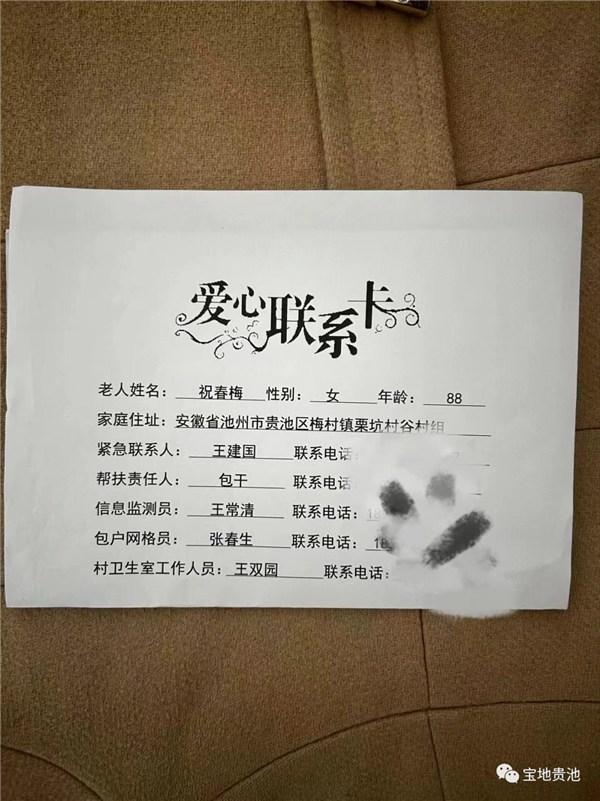 爱心联系卡
老人姓名： 祝春梅 性别： 女 年龄： 88
家庭住址： 安徽省池州市贵池区梅村镇栗坑村谷村组
紧急联系人： 王建国 联系电话：
帮扶责任人： 包干 联系电话：
信息监测员： 王常清 联系电话： 18
包户网格员： 张春生 联系电话： 18
村卫生室工作人员： 王双园 联系电话：
宝地贵池